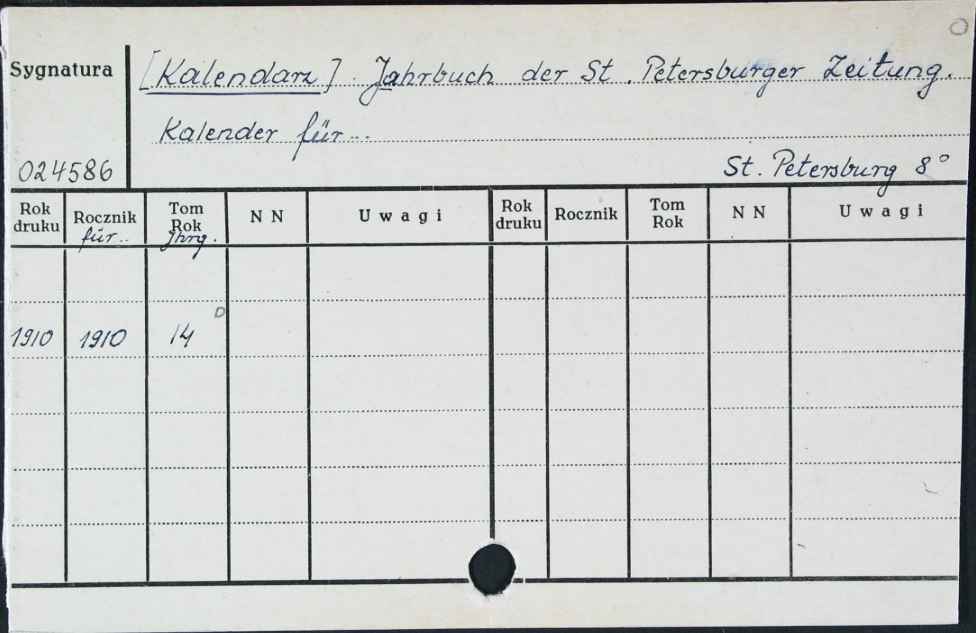 Sygnatura [Kalendarz]. Jahrbuch der St. Petersburger Zeitung.
Kalender für...
024586 St. Petersburg 8°
Rok druku Rocznik für... Tom Rok Jhrg. N N Uwagi Rok druku Rocznik Tom Rok N N Uwagi
1910 1910 14